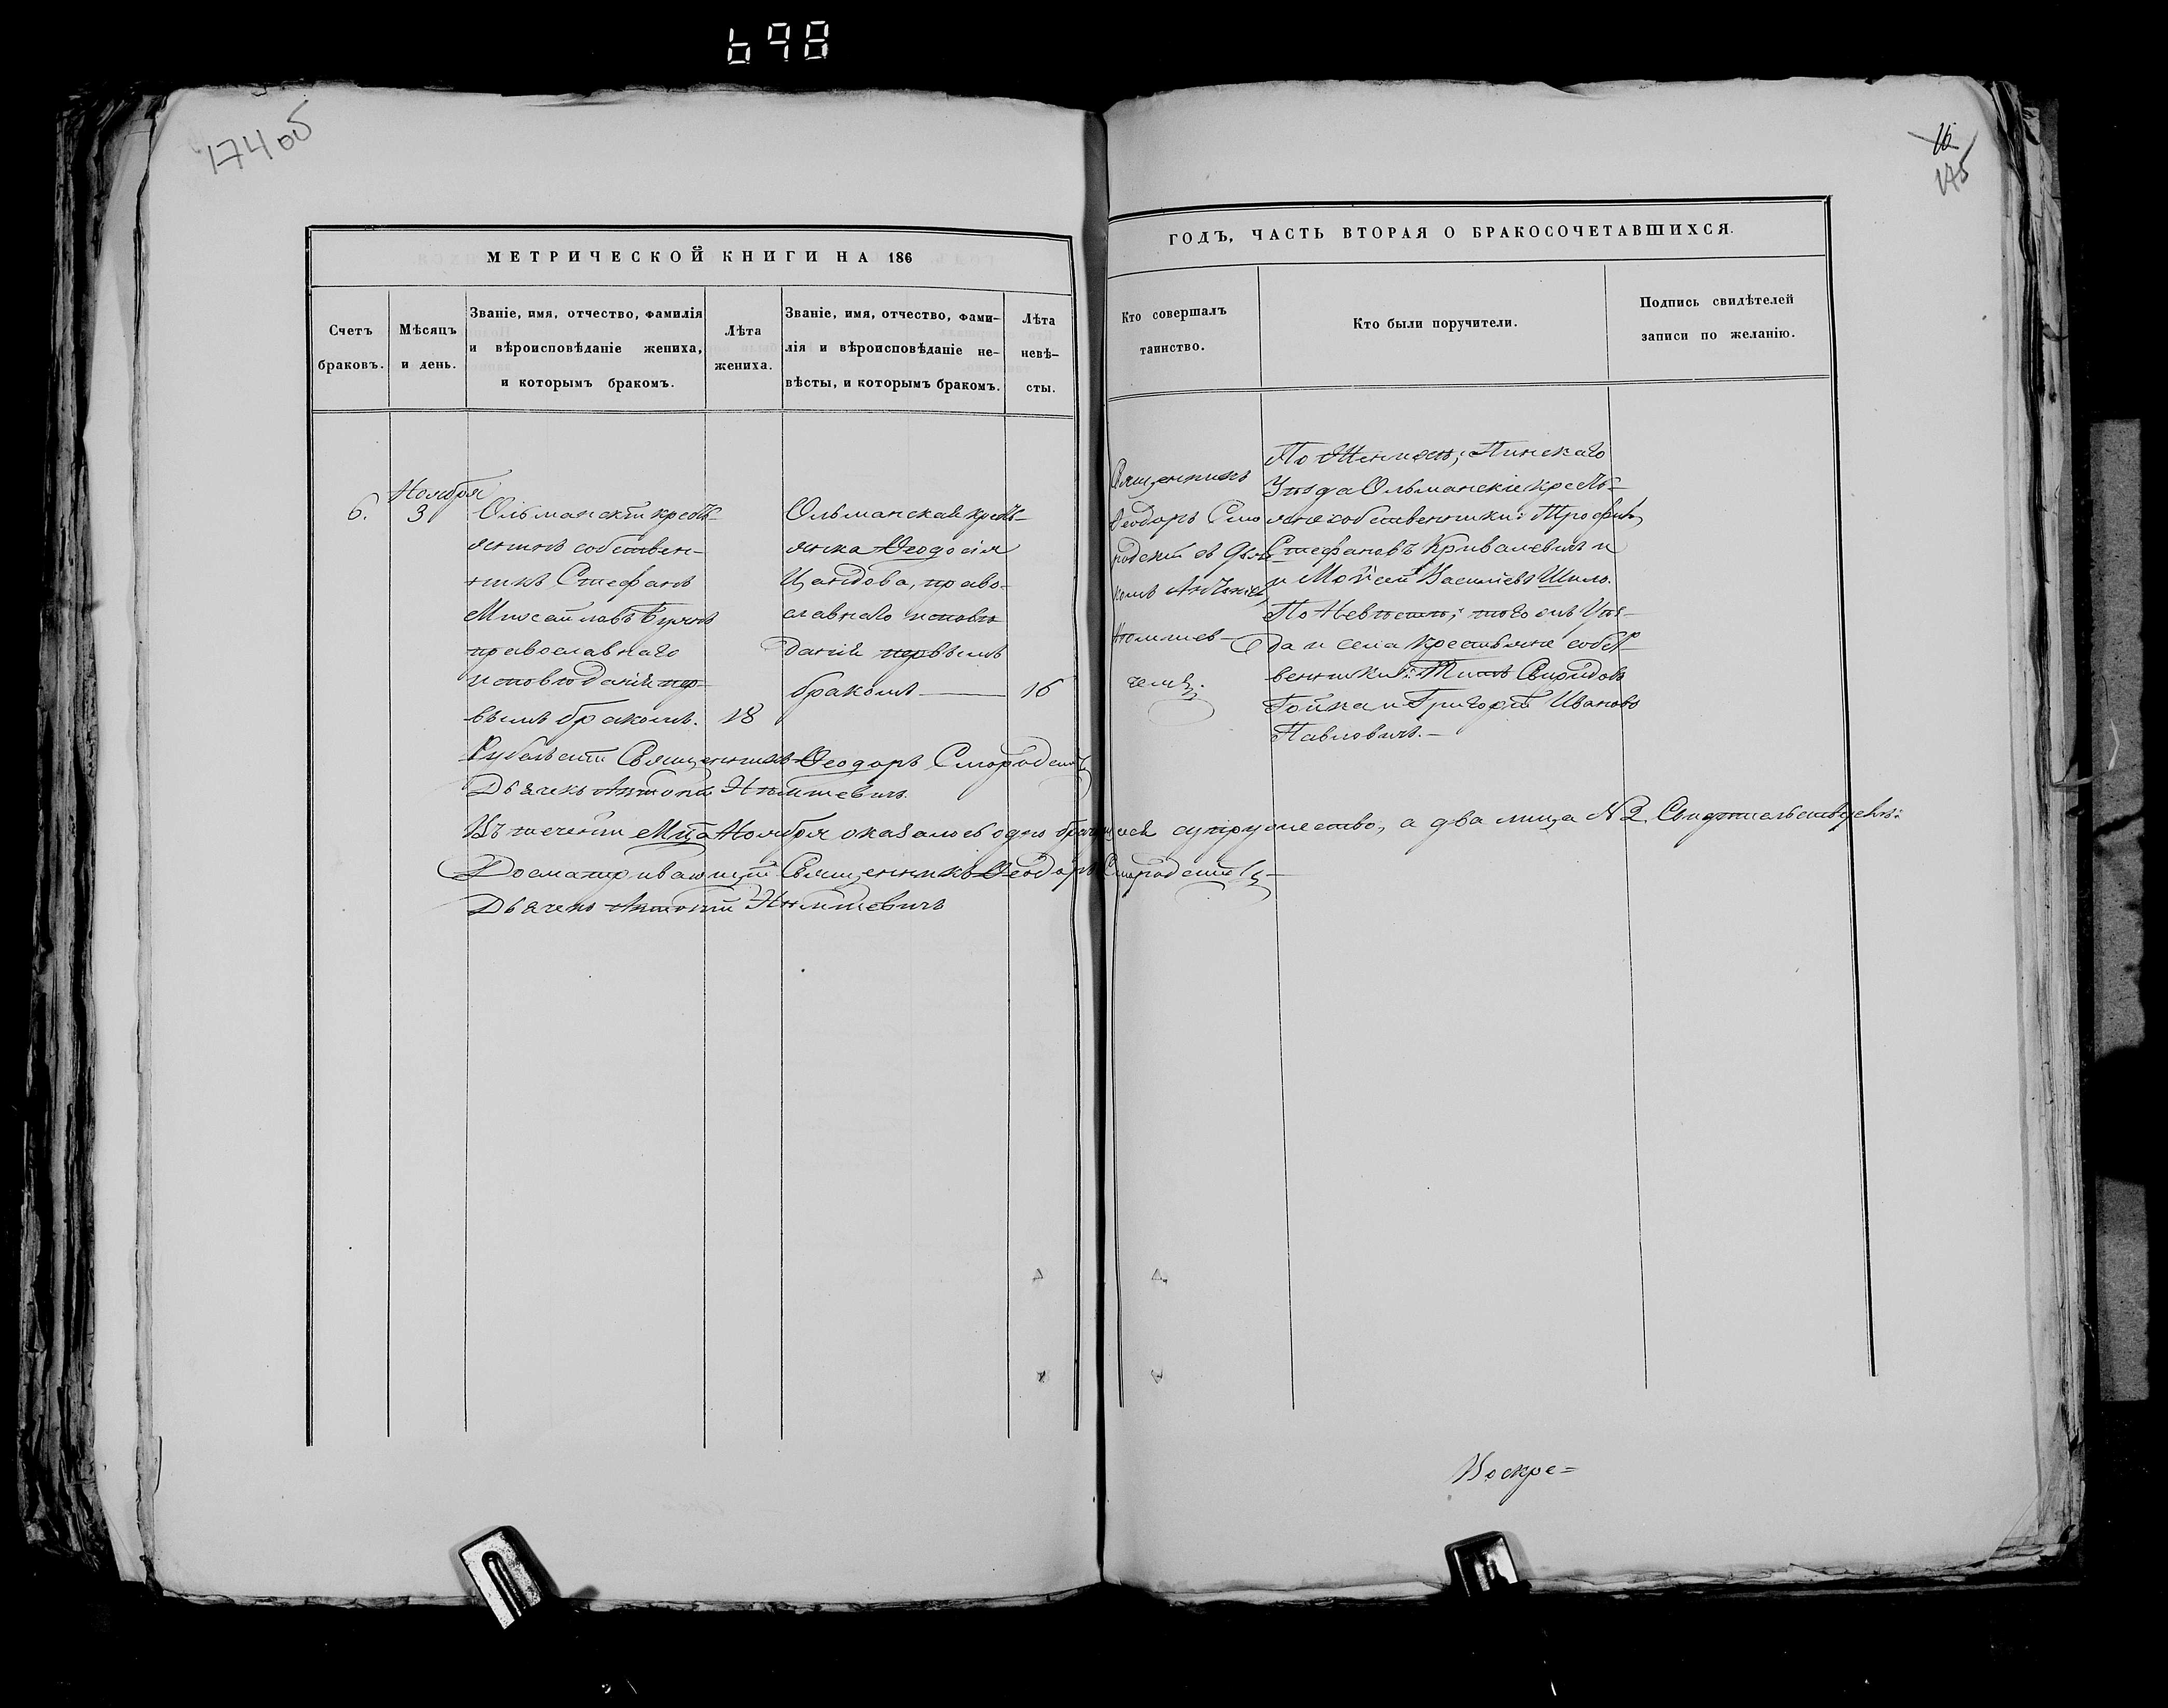 698
174 об
16
175
МЕТРИЧЕСКОЙ КНИГИ НА 186
ГОДЪ, ЧАСТЬ ВТОРАЯ О БРАКОСОЧЕТАВШИХСЯ.
Счетъ
браковъ.
Мѣсяцъ
и день.
Званіе, имя, отчество, фамилія
и вѣроисповѣданіе жениха,
и которымъ бракомъ.
Лѣта
жениха.
Званіе, имя, отчество, фами-
лія и вѣроисповѣданіе не-
вѣсты, и которымъ бракомъ.
Лѣта
невѣ-
сты.
Кто совершалъ
таинство.
Кто были поручители.
Подпись свидѣтелей
записи по желанію.
6.
Ноября
3
Ольманскій кресть-
янинъ собствен-
никъ Стефанъ
Михайловъ
православнаго
исповѣданія пер-
вымъ бракомъ.
18
Ольманская кресть-
янка Ѳеодосія
право-
славнаго исповѣ
данія первымъ
бракомъ —
16
Священникъ
Ѳеодоръ Смо
родскій съ Дьяч
комъ Антоніем
Нѣмцев-
чемъ.
По Женихѣ; Пинскаго
Уѣзда Ольманскіе кресть-
яне собственники: Трофимъ
Стефановъ Кривалевичъ и
и Моѵсей Василіевъ Шило.
По Невѣстѣ; того жъ Уѣз-
да и села крестьяне собст
венники: Титъ Свиридовъ
Гойка и Григорій Ивановъ
Павловичъ. —
Рубельскій Священникъ Ѳеодоръ Смородскій
Дьячекъ Антоній Нѣмцевичъ
Въ теченіи Мца Ноября оказалось одно брачущееся супружество, а два лица №2. Свидѣтельствуемъ:
Досматривающій Священникъ Ѳеодоръ Смородскій
Дьячекъ Антоній Нѣмцевичъ
Воскре=